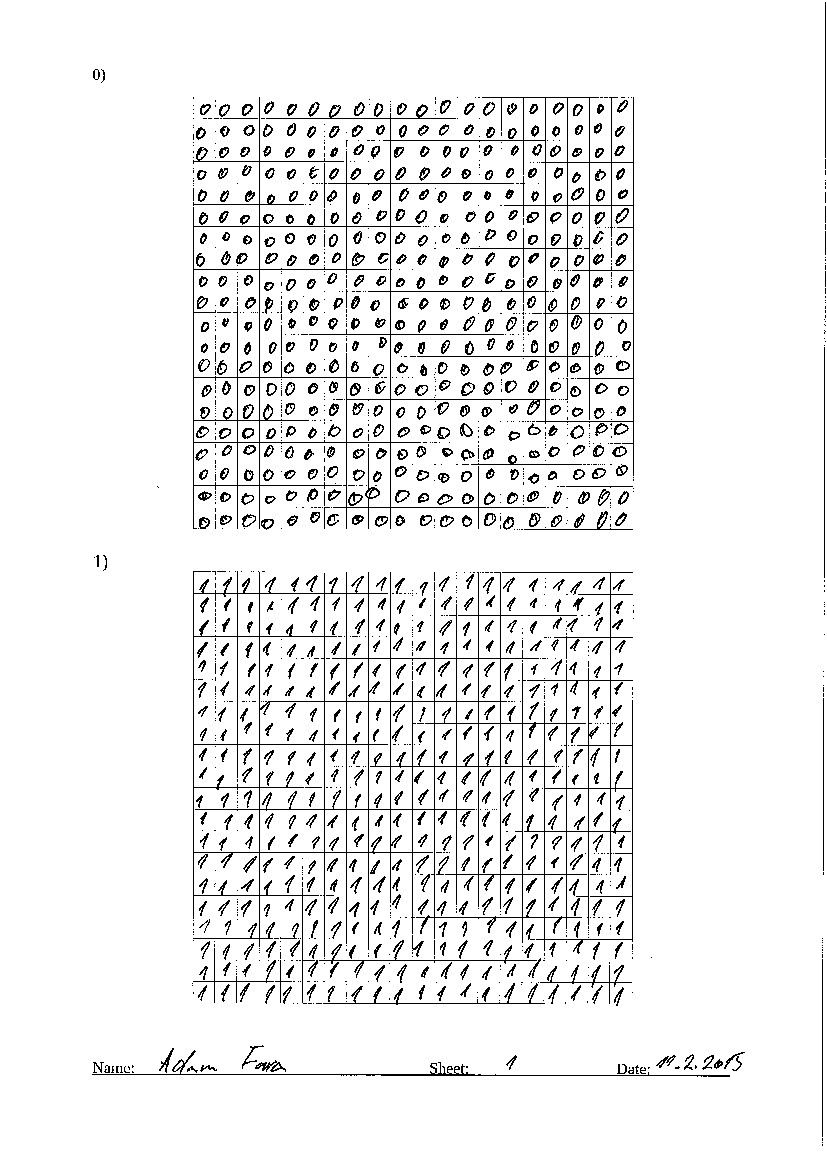 0)
0 0 0 0 0 0 0 0 0 0 0 0 0 0 0 0 0 0 0 0
0 0 0 0 0 0 0 0 0 0 0 0 0 0 0 0 0 0 0 0
0 0 0 0 0 0 0 0 0 0 0 0 0 0 0 0 0 0 0 0
0 0 0 0 0 0 0 0 0 0 0 0 0 0 0 0 0 0 0 0
0 0 0 0 0 0 0 0 0 0 0 0 0 0 0 0 0 0 0 0
0 0 0 0 0 0 0 0 0 0 0 0 0 0 0 0 0 0 0 0
0 0 0 0 0 0 0 0 0 0 0 0 0 0 0 0 0 0 0 0
0 0 0 0 0 0 0 0 0 0 0 0 0 0 0 0 0 0 0 0
0 0 0 0 0 0 0 0 0 0 0 0 0 0 0 0 0 0 0 0
0 0 0 0 0 0 0 0 0 0 0 0 0 0 0 0 0 0 0 0
0 0 0 0 0 0 0 0 0 0 0 0 0 0 0 0 0 0 0 0
0 0 0 0 0 0 0 0 0 0 0 0 0 0 0 0 0 0 0 0
0 0 0 0 0 0 0 0 0 0 0 0 0 0 0 0 0 0 0 0
0 0 0 0 0 0 0 0 0 0 0 0 0 0 0 0 0 0 0 0
0 0 0 0 0 0 0 0 0 0 0 0 0 0 0 0 0 0 0 0
0 0 0 0 0 0 0 0 0 0 0 0 0 0 0 0 0 0 0 0
0 0 0 0 0 0 0 0 0 0 0 0 0 0 0 0 0 0 0 0
0 0 0 0 0 0 0 0 0 0 0 0 0 0 0 0 0 0 0 0
0 0 0 0 0 0 0 0 0 0 0 0 0 0 0 0 0 0 0 0
0 0 0 0 0 0 0 0 0 0 0 0 0 0 0 0 0 0 0 0
1)
1 1 1 1 1 1 1 1 1 1 1 1 1 1 1 1 1 1 1 1
1 1 1 1 1 1 1 1 1 1 1 1 1 1 1 1 1 1 1 1
1 1 1 1 1 1 1 1 1 1 1 1 1 1 1 1 1 1 1 1
1 1 1 1 1 1 1 1 1 1 1 1 1 1 1 1 1 1 1 1
1 1 1 1 1 1 1 1 1 1 1 1 1 1 1 1 1 1 1 1
1 1 1 1 1 1 1 1 1 1 1 1 1 1 1 1 1 1 1 1
1 1 1 1 1 1 1 1 1 1 1 1 1 1 1 1 1 1 1 1
1 1 1 1 1 1 1 1 1 1 1 1 1 1 1 1 1 1 1 1
1 1 1 1 1 1 1 1 1 1 1 1 1 1 1 1 1 1 1 1
1 1 1 1 1 1 1 1 1 1 1 1 1 1 1 1 1 1 1 1
1 1 1 1 1 1 1 1 1 1 1 1 1 1 1 1 1 1 1 1
1 1 1 1 1 1 1 1 1 1 1 1 1 1 1 1 1 1 1 1
1 1 1 1 1 1 1 1 1 1 1 1 1 1 1 1 1 1 1 1
1 1 1 1 1 1 1 1 1 1 1 1 1 1 1 1 1 1 1 1
1 1 1 1 1 1 1 1 1 1 1 1 1 1 1 1 1 1 1 1
1 1 1 1 1 1 1 1 1 1 1 1 1 1 1 1 1 1 1 1
1 1 1 1 1 1 1 1 1 1 1 1 1 1 1 1 1 1 1 1
1 1 1 1 1 1 1 1 1 1 1 1 1 1 1 1 1 1 1 1
1 1 1 1 1 1 1 1 1 1 1 1 1 1 1 1 1 1 1 1
1 1 1 1 1 1 1 1 1 1 1 1 1 1 1 1 1 1 1 1
Name: Adam Sheet: 1 Date: